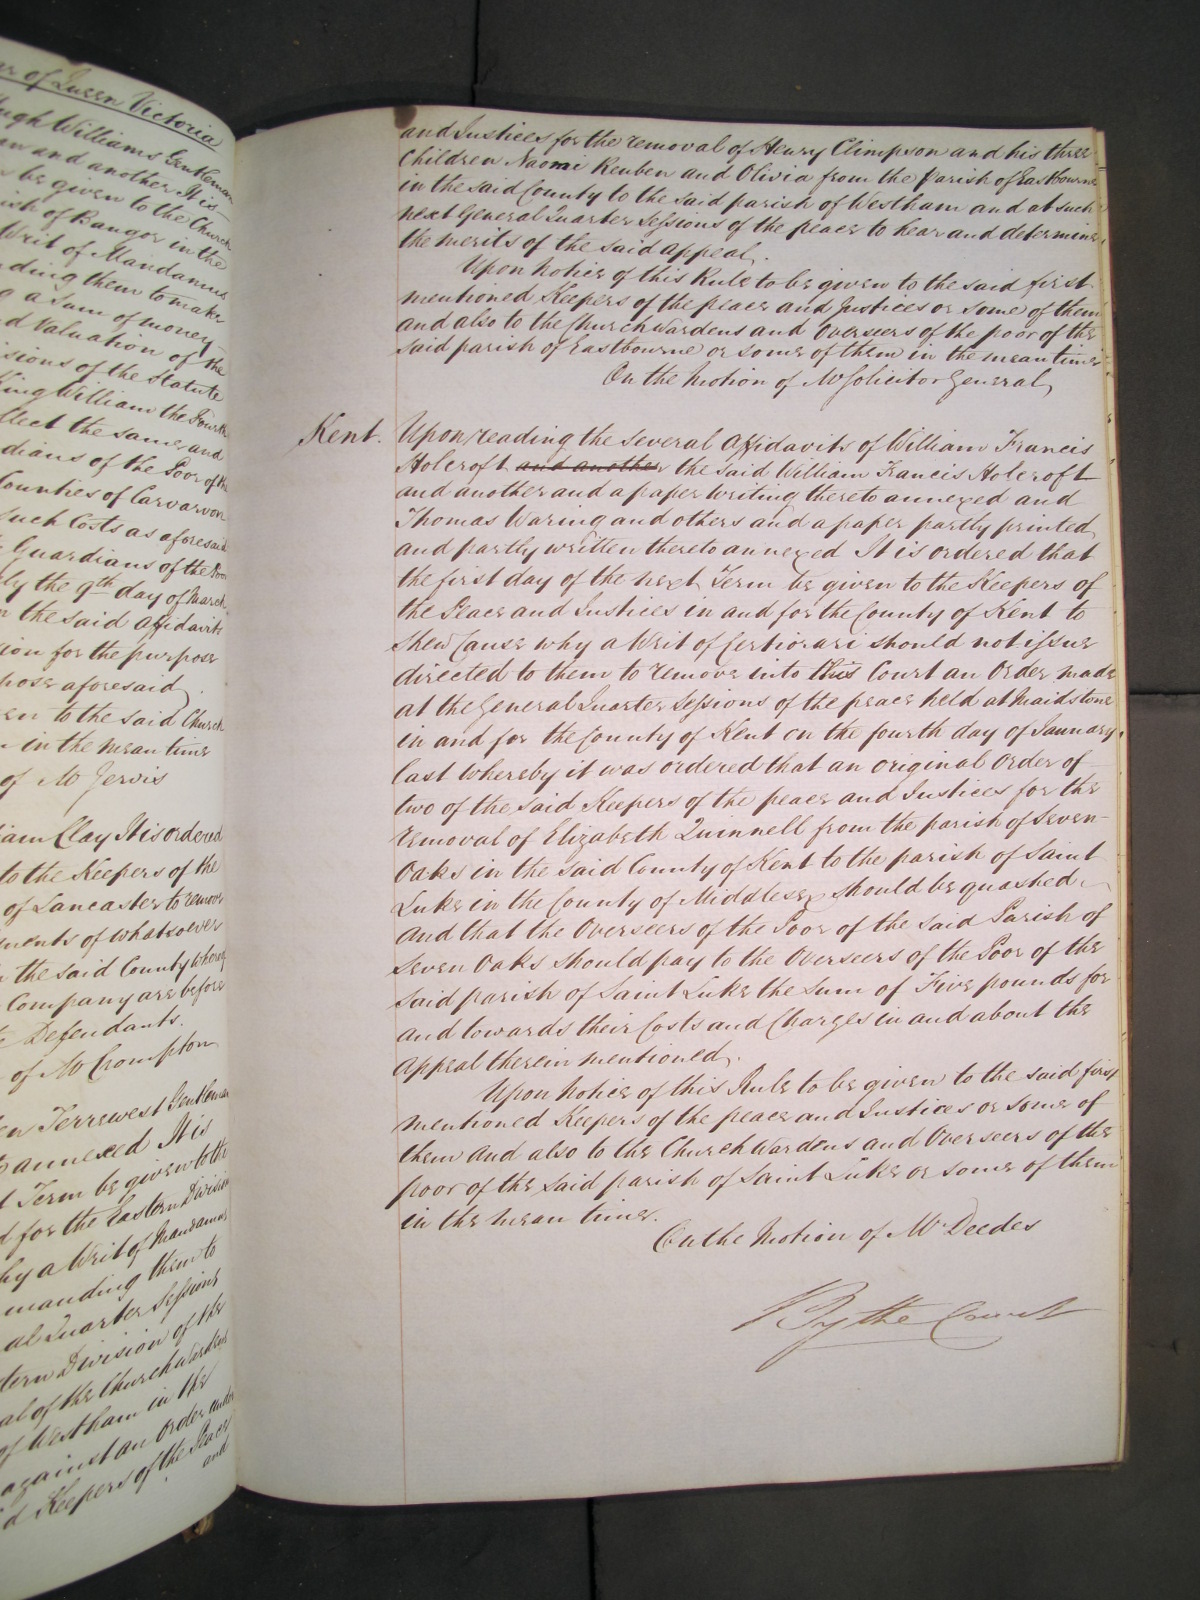 ar of Queen Victoria
Hugh Williams Gentleman
and another It is
be given to the Church
ish of Bangor in the
Writ of Mandamus
ding them to make
g a Sum of money
d Valuation of the
isions of the Statute
King William the Fourth
llect the same and
dians of the Poor of the
Counties of Carvarvon
such Costs as aforesaid
Guardians of the Poor
ly the 9th day of March
n the said Affidavits
ion for the purpose
pose aforesaid.
en to the said Church
in the mean time
of Mr Jervis
iam Clay It is ordered
to the Keepers of the
of Lancaster to remove
ments of whatsoever
the said County whereof
Company are before
Defendants.
of Mr Crompton
en Terrewest Gentleman
annexed It is
t Term be given to the
d for the Eastern Division
hy a Writ of Mandamus
manding them to
al Quarter Sessions
tern Division of the
al of the Churchwardens
of Westham in the
against an Order under
d Keepers of the Peace
and
and Justices for the removal of Henry Climpson and his three
Children Naomi Reuben and Olivia from the Parish of Eastbourne
in the said County to the said parish of Westham and at such
next General Quarter Sessions of the peace to hear and determine
the merits of the said appeal.
Upon Notice of this Rule to be given to the said first
mentioned Keepers of the peace and Justices or some of them
and also to the Churchwardens and Overseers of the poor of the
said parish of Eastbourne or some of them in the mean time
On the Motion of Mr Solicitor General
Kent. Upon reading the several Affidavits of William Francis
Holcroft and another the said William Francis Holcroft
and another and a paper Writing thereto annexed and
Thomas Waring and others and a paper partly printed
and partly written thereto annexed It is ordered that
the first day of the next Term be given to the Keepers of
the Peace and Justices in and for the County of Kent to
shew Cause why a Writ of Certiorari should not issue
directed to them to remove into this Court an Order made
at the General Quarter Sessions of the peace held at Maidstone
in and for the County of Kent on the fourth day of January
last whereby it was ordered that an original Order of
two of the said Keepers of the peace and Justices for the
removal of Elizabeth Quinnell from the parish of Seven-
Oaks in the said County of Kent to the parish of Saint
Luke in the County of Middlesex should be quashed
And that the Overseers of the Poor of the said Parish of
Seven Oaks should pay to the Overseers of the Poor of the
said parish of Saint Luke the Sum of Five pounds for
and towards their Costs and Charges in and about the
Appeal therein mentioned.
Upon Notice of this Rule to be given to the said first
mentioned Keepers of the peace and Justices or some of
them and also to the Churchwardens and Overseers of the
poor of the said parish of Saint Luke or some of them
in the mean time.
On the Motion of Mr Deedes
By the Court